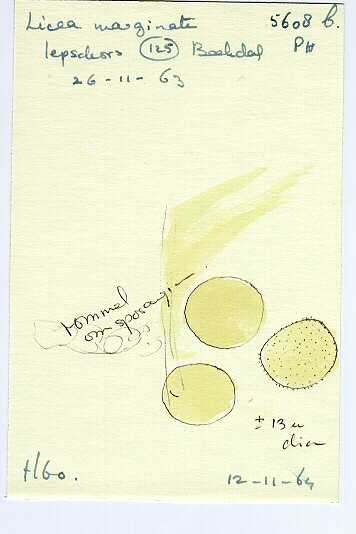 Licea marginata 5608 b.
iepschors (125) Beekdal PH
26-11-63
rommel
om sporangiën
± 13 u
diam
12-11-64